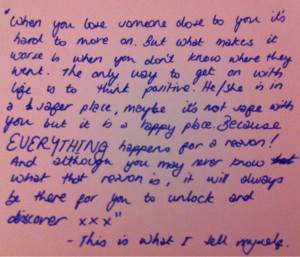 "When you lose someone close to you it's
hard to move on. But what makes it
worse is when you don't know where they
went. The only way to get on with
life is to think positive. He/she is in
a safer place, maybe it's not safe with
you but it is a happy place. Because
EVERYTHING happens for a reason!
And although you may never know
what that reason is, it will always
be there for you to unlock and
discover xxx"
- This is what I tell myself.